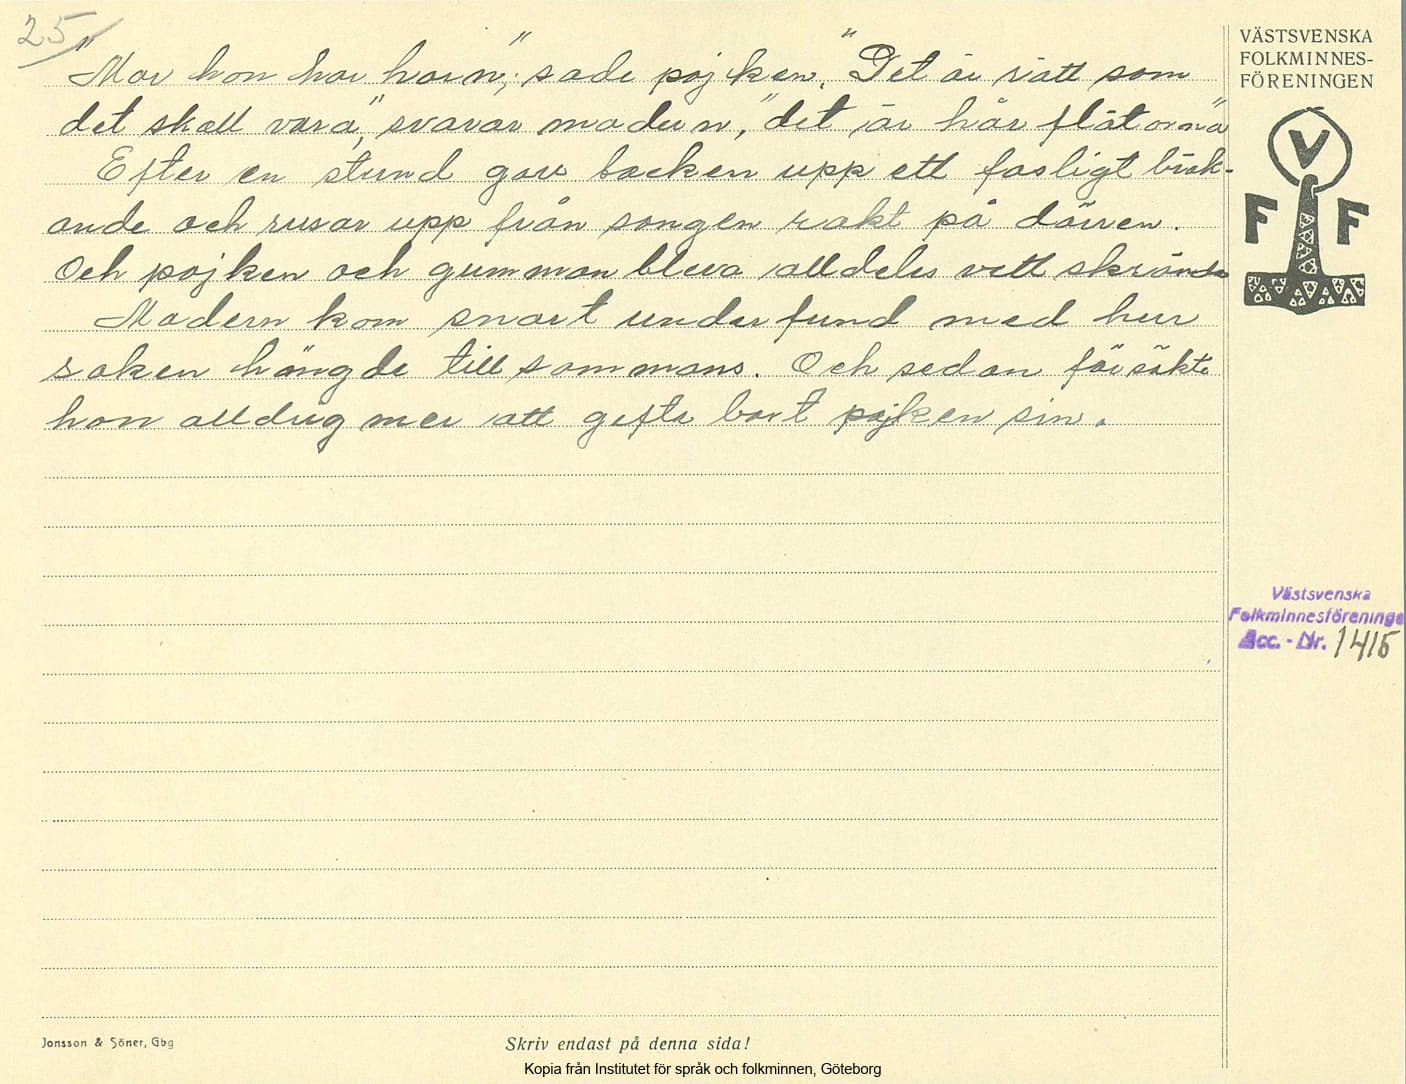 25
VÄSTSVENSKA
FOLKMINNES-
FÖRENINGEN
"Mor hon har horn", sade pojken. "Det är rätt som
det skall vara", svarar modern, "det är hår flätorna"
Efter en stund gav bocken upp ett fasligt bräk-
ande och rusar upp från sängen rakt på dörren.
Och pojken och gumman bleva alldeles vett skrämda
Modern kom snart underfund med hur
saken hängde tillsammans. Och sedan försökte
hon alldrig mer att gifta bort pojken sin.
V
F F
Västsvenska
Folkminnesförening
Acc. - Nr. 1415
Jonsson & Söner, Gbg
Skriv endast på denna sida!
Kopia från Institutet för språk och folkminnen, Göteborg